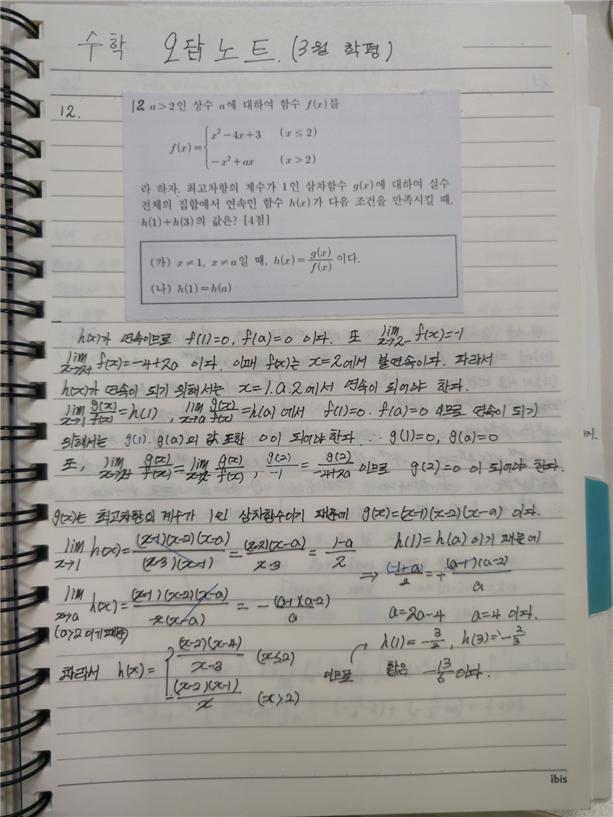 수학 오답노트. (3월 학평)
12.
12 a>2인 상수 a에 대하여 함수 f(x)를
f(x)={ x²-4x+3 (x≤2)
-x²+ax (x>2)
라 하자. 최고차항의 계수가 1인 삼차함수 g(x)에 대하여 실수
전체의 집합에서 연속인 함수 h(x)가 다음 조건을 만족시킬 때,
h(1)+h(3)의 값은? [4점]
(가) x≠1, x≠a일 때, h(x)=g(x)/f(x)이다.
(나) h(1)=h(a)
h(x)가 연속이므로 f(1)=0, f(a)=0 이다. 또 lim x→2- f(x)=-1
lim x→2+ f(x)=-4+2a 이다. 이때 f(x)는 x=2에서 불연속이다. 따라서
h(x)가 연속이 되기 위해서는 x=1.a.2에서 연속이 되어야 한다.
lim x→1 g(x)/f(x)=h(1), lim x→a g(x)/f(x)=h(a) 에서 f(1)=0. f(a)=0 이므로 연속이 되기
위해서는 g(1). g(a)의 값 또한 0이 되어야한다. ∴ g(1)=0, g(a)=0
또, lim g(x)/f(x)=lim g(x)/f(x), g(2)/-1=g(2)/-4+2a 이므로 g(2)=0 이 되어야 한다.
g(x)는 최고차항의 계수가 1인 삼차함수이기 때문에 g(x)=(x-1)(x-2)(x-a) 이다.
lim x→1 h(x)=(x-1)(x-2)(x-a)/(x-3)(x-1)=(x-2)(x-a)/x-3=1-a/2 h(1)=h(a) 이기 때문에
⇒ (-1+a)/2=+(a-1)(a-2)/a
lim x→a h(x)=(x-1)(x-2)(x-a)/-x(x-a)=-(a-1)(a-2)/a a=2a-4 a=4 이다.
(a>2이기 때문)
따라서 h(x)={ (x-2)(x-4)/x-3 (x≤2) 이므로 h(1)=-3/2, h(3)=-2/3
-(x-2)(x-1)/x (x>2) 합은 -13/6이다.
ibis